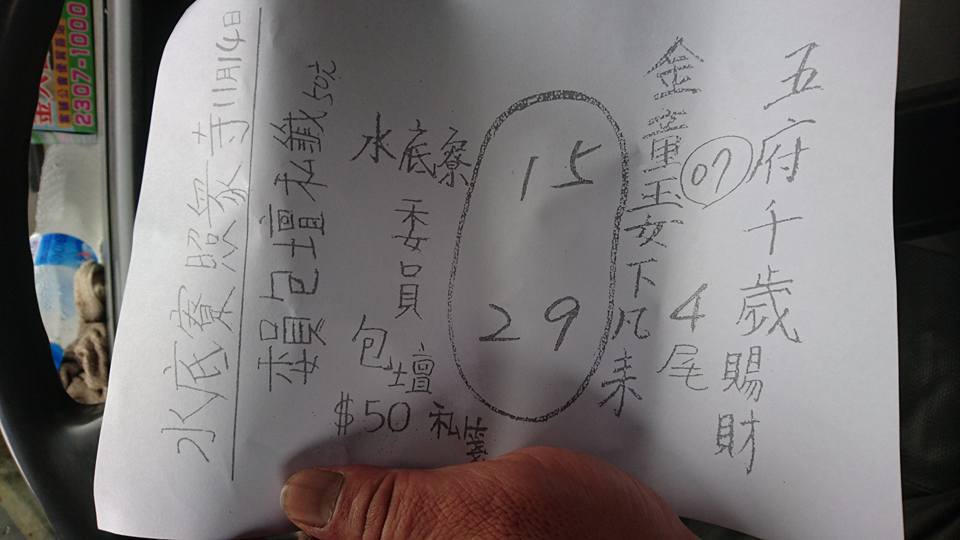 五府千歲賜財
07
4尾
金童玉女下凡來
15
29
水底寮
委員
包壇
$50 私簽
委員包壇私籤50元
水底寮照眾寺11月14日
2307-1000